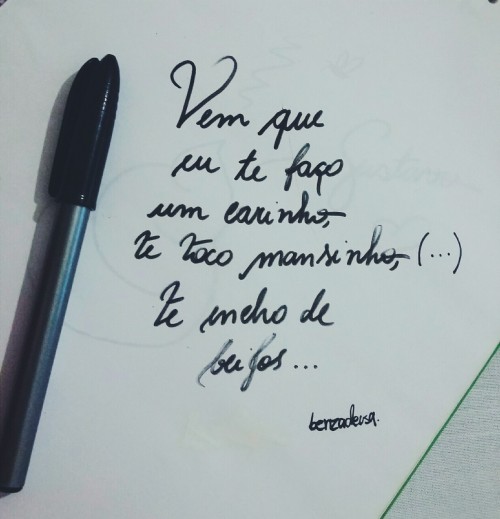 Vem que
eu te faço
um carinho,
te toco mansinho, (...)
te incho de
beijos...
benzadeusa.